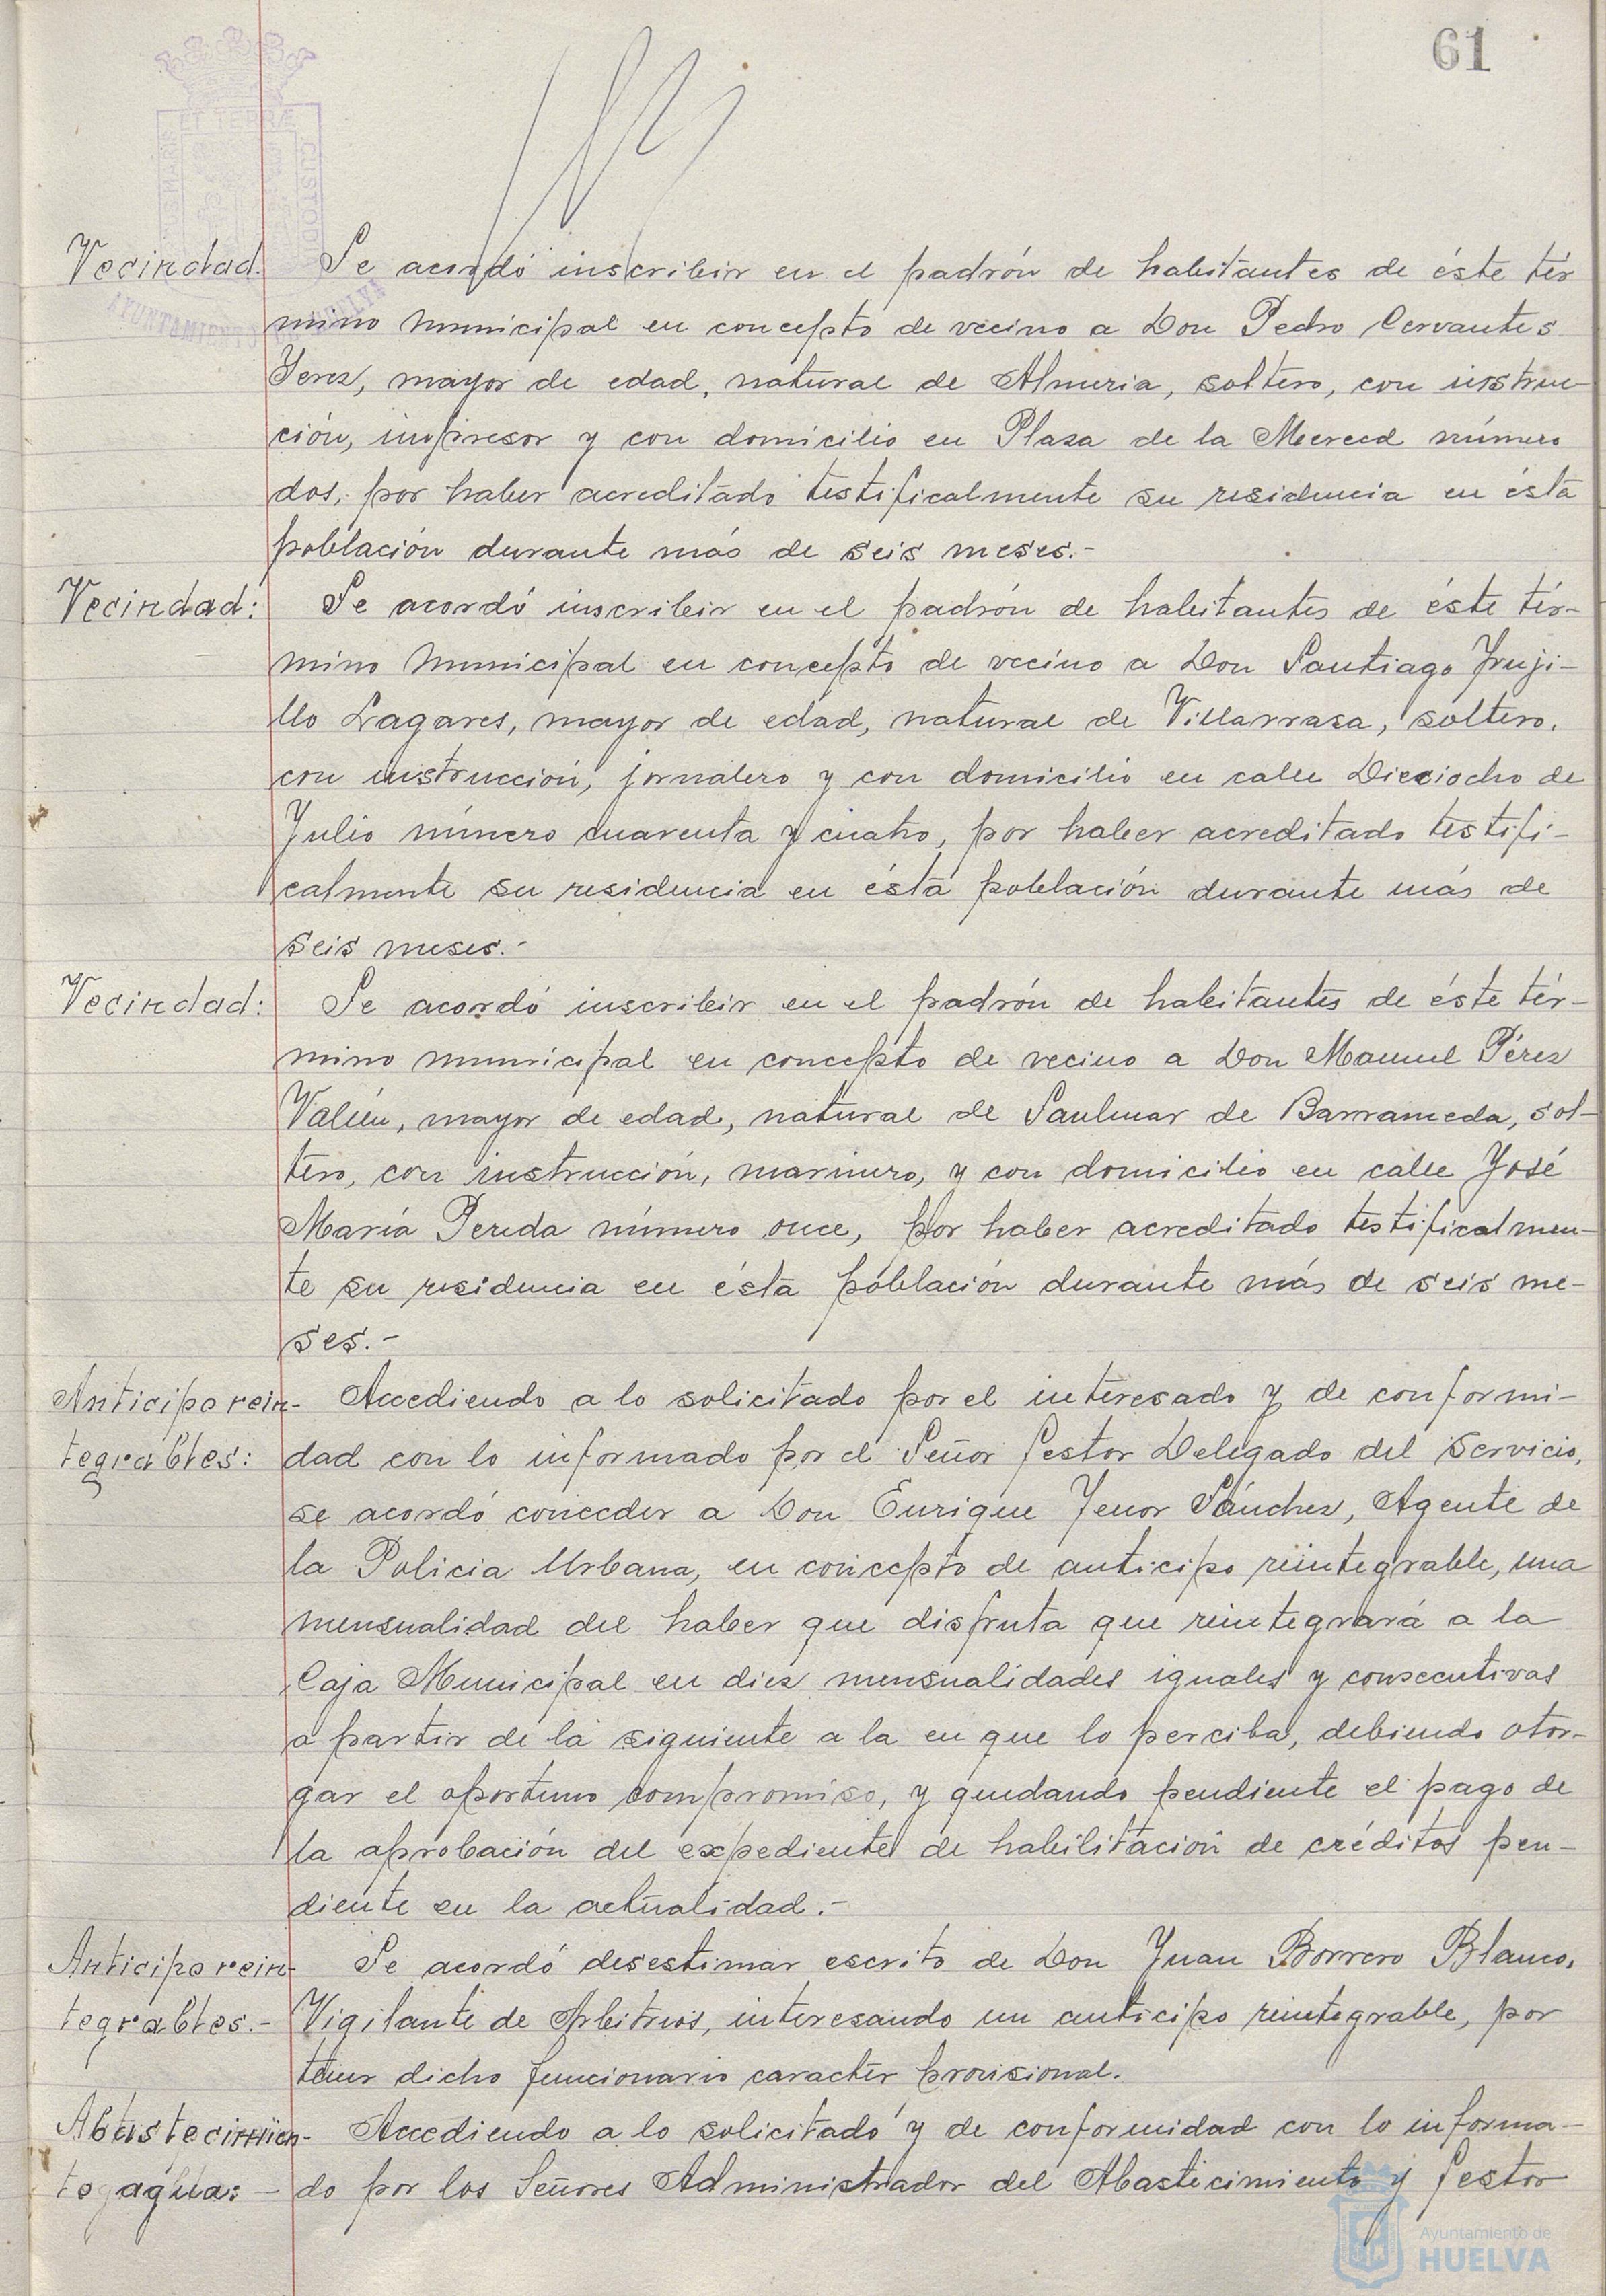 61
ET TERRÆ
CUSTODIA
AYUNTAMIENTO DE HUELVA
Vecindad. Se acordó inscribir en el padrón de habitantes de éste tér
mino municipal en concepto de vecino a Don Pedro Cervantes
Yerez, mayor de edad, natural de Almeria, soltero, con instruc-
ción, impresor y con domicilio en Plaza de la Merced número
dos, por haber acreditado testificalmente su residencia en ésta
población durante más de seis meses.-
Vecindad: Se acordó inscribir en el padrón de habitantes de éste tér-
mino municipal en concepto de vecino a Don Santiago Truji-
llo Lagares, mayor de edad, natural de Villarrasa, soltero,
con instrucción, jornalero y con domicilio en calle Dieciocho de
Julio número cuarenta y cuatro, por haber acreditado testifi-
calmente su residencia en ésta población durante más de
seis meses.-
Vecindad: Se acordó inscribir en el padrón de habitantes de éste tér-
mino municipal en concepto de vecino a Don Manuel Pérez
mayor de edad, natural de Sanlucar de Barrameda, sol-
tero, con instrucción, marinero, y con domicilio en calle José
María Pereda número once, por haber acreditado testificalmen-
te su residencia en ésta población durante más de seis me-
ses.-
Anticipo rein- Accediendo a lo solicitado por el interesado y de conformi-
tegrables: dad con lo informado por el Señor Gestor Delegado del Servicio,
se acordó conceder a Don Enrique Tenor Sánchez, Agente de
la Policia Urbana, en concepto de anticipo reintegrable, una
mensualidad del haber que disfruta que reintegrará a la
Caja Municipal en diez mensualidades iguales y consecutivas
a partir de la siguiente a la en que lo perciba, debiendo otor-
gar el oportuno compromiso, y quedando pendiente el pago de
la aprobación del expediente de habilitación de créditos pen-
diente en la actualidad.-
Anticipo rein- Se acordó desestimar escrito de Don Juan Borrero Blanco,
tegrables.- Vigilante de Arbitrios, interesando un anticipo reintegrable, por
tener dicho funcionario caracter provisional.
Abastecimien- Accediendo a lo solicitado y de conformidad con lo informa-
to agua: - do por los Señores Administrador del Abastecimiento y Gestor
Ayuntamiento de
HUELVA